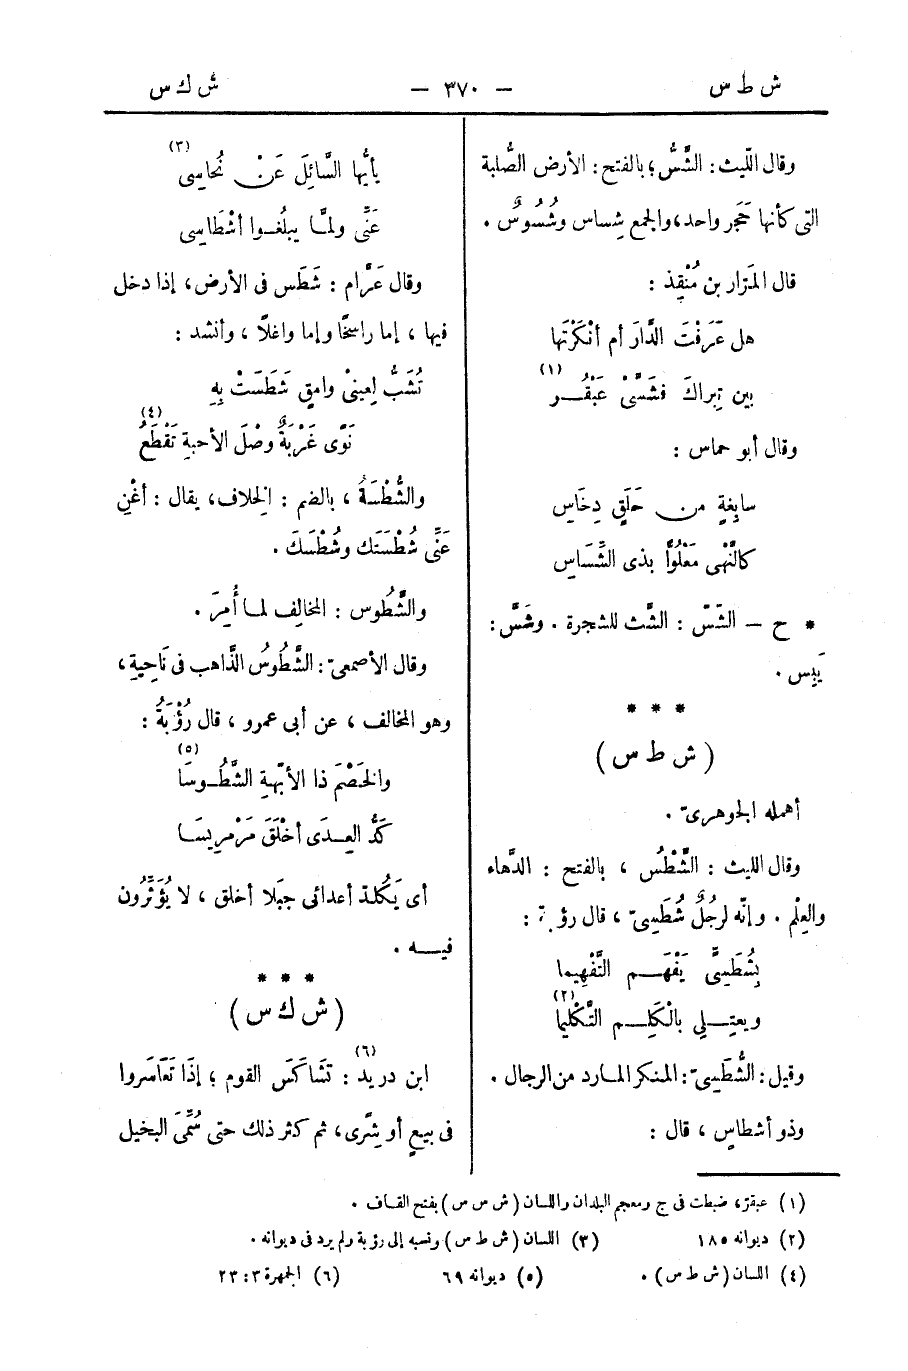 ش ط س — ٣٧٠ — ش ك س
وقال الليث : الشَّسُّ ؛ بالفتح : الأرض الصُّلبة
التى كأنها حَجَر واحد ، والجمع شِساس وشُسُوسٌ .
قال المَرّار بن مُنْقِذ :
هل عَرَفْتَ الدَّارَ أم أنْكَرْتَها
بين تِبراكَ فشَسَّىْ عَبْقُــر (١)
وقال أبو حماس :
سابِغةٍ من حَلَقٍ دِخَاسِ
كالنَّهْى مَعْلُوًّا بذى الشِّسَاسِ
* ح — الشّسّ : الشَّث للشجرة . وشَسَّ :
يَبِس .
* * *
( ش ط س )
أهمله الجوهرىّ .
وقال الليث : الشَّطْسُ ، بالفتح : الدَّهاء
والعِلْم . وإنّه لرجُلٌ شُطَسِىّ ، قال رؤبة :
بِشُطَسِىٍّ يَفْهَــم التَّفْهِيما
ويعتِــلِى بالْكَلِــم التَّكْلِيما (٢)
وقيل : الشُّطَسِىّ : المنكر المـارد من الرجال .
وذو أشطاسٍ ، قال :
يأيُّها السَّائِلَ عَنْ نُحاسِى (٣)
عَنِّى ولمَّـا يبلُغــوا أشْطَاسِى
وقال عَرَّام : شَطَس فى الأرض ، إذا دخل
فيها ، إما راسخًا وإما واغلاً ، وأنشد :
تُشَبُّ لِعينَىْ وامقٍ شَطَسَتْ بِهِ
نَوًى غَرْبَةٌ وصْلَ الأحبةِ تَقْطَعُ (٤)
والشُّطْسَةُ ، بالضم : الخلاف ، يقال : أغْنِ
عَنِّى شُطْسَتَك وشُطْسَكَ .
والشَّطُوس : المخالِف لمـا أُمِرَ .
وقال الأصمعىّ : الشَّطُوسُ الذَّاهب فى نَاحِيةٍ ،
وهو المخالف ، عن أبى عمرو ، قال رُؤْبَةُ :
والخَصْمَ ذا الأبّهةِ الشَّطُــوسَا (٥)
كَدُّ العِــدَى أخْلَقَ مَرْمرِيسَــا
أى يَكُلدّ أعدائى جبَلا أخلق ، لا يُؤَثِّرُون
فيــه .
* * *
( ش ك س )
ابن دريد (٦) : تشَاكَسَ القوم ؛ إذَا تَعَاسَروا
فى بيعٍ أو شِرًى ، ثم كثر ذلك حتى سُمِّىَ البخيل
(١) عبقرّ، ضبطت فى ج ومعجم البلدان واللسان ( ش س س ) بفتح القـاف .
(٢) ديوانه ١٨٥ (٣) اللسان ( ش ط س ) ونسبه إلى رؤبة ولم يرد فى ديوانه .
(٤) اللسان ( ش ط س ) . (٥) ديوانه ٦٩ (٦) الجمهرة ٣ : ٢٣